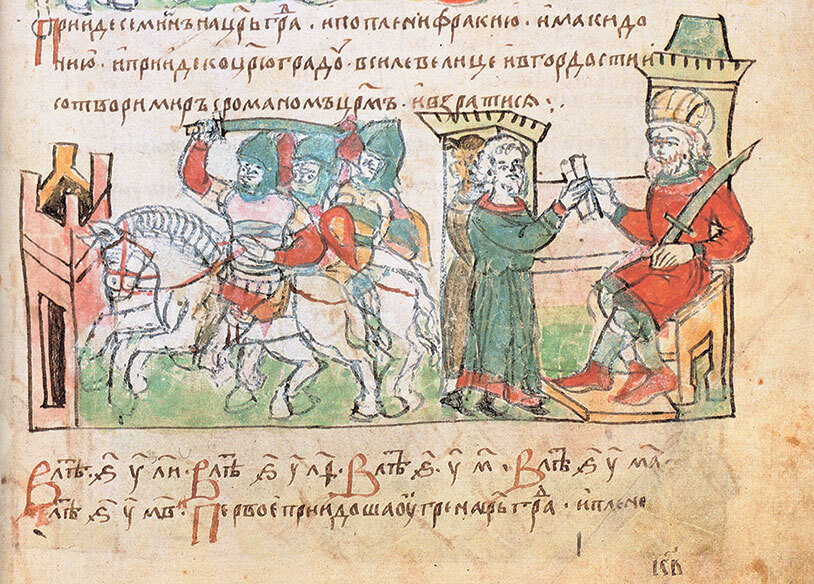 Прииде семиѡнъ на цр҃ьграⷣ · и поплени фракию · и макидо
нию · и прииде ко цр҃югрдⷹ · в силе велице и в гордости и
сотвори мир съ романомъ цр҃мъ · и взратися :·
В лт҃ѣ · ѕ҃ у҃ л҃и · В лт҃ѣ ѕ҃ у҃ л҃ѳ · В лт҃ѣ ѕ҃ · у҃ · м҃ · В лт҃ѣ ѕ҃ у҃ м҃а ·
В лт҃ѣ ѕ҃ у҃ м҃в · Первое приидоша оугре на црь граⷣ · и плене